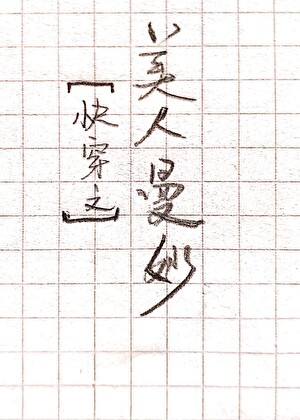 美人曼妙
【快穿文】